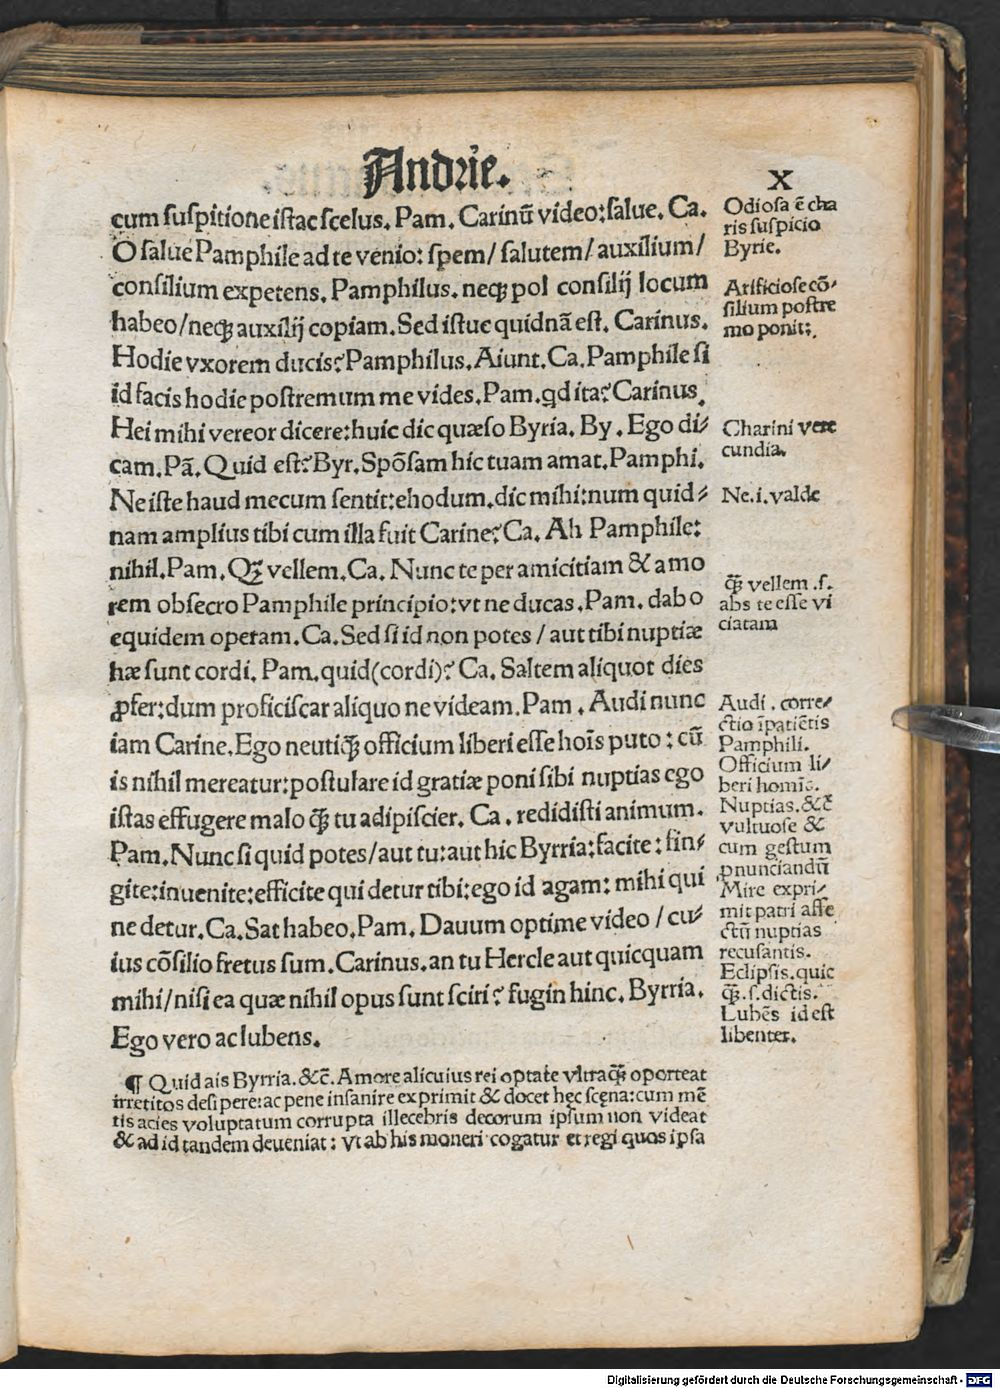 Andrie.
X
cum suspitione istac scelus. Pam. Carinū video: salue. Ca.
O salue Pamphile ad te venio: spem/ salutem/ auxilium/
consilium expetens. Pamphilus. neqꝫ pol consilij locum
habeo/ neqꝫ auxilij copiam. Sed istuc quidnā est. Carinus.
Hodie vxorem ducis? Pamphilus. Aiunt. Ca. Pamphile si
id facis hodie postremum me vides. Pam. qd ita? Carinus.
Hei mihi vereor dicere: huic dic quæso Byria. By. Ego di⸗
cam. Pā. Quid est? Byr. Spōsam hic tuam amat. Pamphi.
Ne iste haud mecum sentit: ehodum. dic mihi: num quid⸗
nam amplius tibi cum illa fuit Carine? Ca. Ah Pamphile:
nihil. Pam. Qꝫ̄ vellem. Ca. Nunc te per amicitiam & amo
rem obsecro Pamphile principio: vt ne ducas. Pam. dabo
equidem operam. Ca. Sed si id non potes / aut tibi nuptiæ
hæ sunt cordi. Pam. quid (cordi)? Ca. Saltem aliquot dies
ꝓfer: dum proficiscar aliquo ne videam. Pam. Audi nunc
iam Carine. Ego neutiqꝫ̄ officium liberi esse hoīs puto: cū
is nihil mereatur: postulare id gratiæ poni sibi nuptias ego
istas effugere malo qꝫ̄ tu adipiscier. Ca. redidisti animum.
Pam. Nunc si quid potes/ aut tu: aut hic Byrria: facite: fin⸗
gite: inuenite: efficite qui detur tibi: ego id agam: mihi qui
ne detur. Ca. Sat habeo. Pam. Dauum optime video / cu⸗
ius cōsilio fretus sum. Carinus. an tu Hercle aut quicquam
mihi/ nisi ea quæ nihil opus sunt sciri? fugin hinc. Byrria.
Ego vero ac lubens.
¶ Quid ais Byrria. &c̄. Amore alicuius rei optate vltraqꝫ̄ oporteat
irretitos desipere: ac pene insanire exprimit & docet hęc scęna: cum mē
tis acies voluptatum corrupta illecebris decorum ipsum non videat
& ad id tandem deueniat: vt ab his moneri cogatur et regi quos ipsa
Odiosa ē cha
ris suspicio
Byrie.
Artificiose cō⸗
silium postre
mo ponit:
Charini vere
cundia.
Ne. i. valde
qꝫ̄ vellem .s.
abs te esse vi
ciatam
Audi. corre⸗
ctio īpatiētis
Pamphili.
Officium li⸗
beri homīs.
Nuptias. &c̄
vultuose &
cum gestum
ꝓnunciandū
Mire expri⸗
mit patri affe
ctū nuptias
recusantis.
Eclipsis. quic
qꝫ̄. s. dictis.
Lubēs id est
libenter.
Digitalisierung gefördert durch die Deutsche Forschungsgemeinschaft - DFG